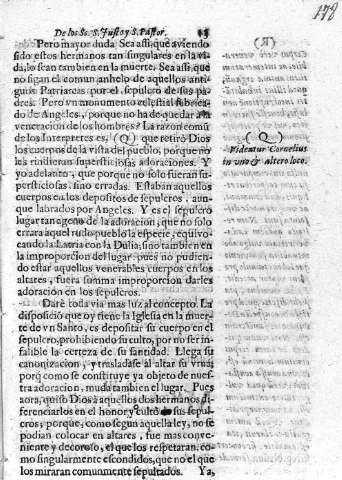 178
De los Ss. S. Justo y S. Pastor. 13
Pero mayor duda. Sea assi, que aviendo
sido estos hermanos tan singulares en la vi-
da, lo sean tambien en la muerte. Sea assi, que
no sigan el comun anhelo de aquellos anti-
guos Patriarcas por el sepulcro de sus pa-
dres. Pero vn monumento celestial fabrica-
do de Angeles, porque no ha de quedar à la
veneracion de los hombres? La razon comũ
de los Interpretes es, (Q) que retirò Dios
los cuerpos de la vista del pueblo, porque no
les rindiessen supersticiosas adoraciones. Y
yo adelanto, que porque no solo fueran su-
persticiosas, sino erradas. Estaban aquellos
cuerpos en los depositos de sepulcros, aun-
que labrados por Angeles. Y es el sepulcro
lugar tan ageno de la adoracion, que no solo
errara aquel rudo pueblo la especie, equivo-
cando la Latria con la Dulia; sino tambien en
la improporcion del lugar; pues no pudien-
do estar aquellos venerables cuerpos en los
altares, fuera summa improporcion darles
adoracion en los sepulcros.
Darè todavia mas luz al concepto. La
disposicion que oy tiene la Iglesia en la muer-
te de vn Santo, es depositar su cuerpo en el
sepulcro, prohibiendo su culto, por no ser in-
falible la certeza de su santidad. Llega su
canonizacion, y trasladase al altar su vrna;
porq̃ como se construye ya objeto de nues-
tra adoracion, muda tambien el lugar. Pues
aora, quiso Dios à aquellos dos hermanos di-
ferenciarlos en el honor, y culto de sus sepul-
cros; porque, como segun aquella ley, no se
podian colocar en altares, fue mas conve-
niente y decoroso, el que los respetaran, co-
mo singularmente escondidos, que no el que
los miraran comunmente sepultados. Ya,
(Q)
Videatur Cornelius
in vno & altero loco.